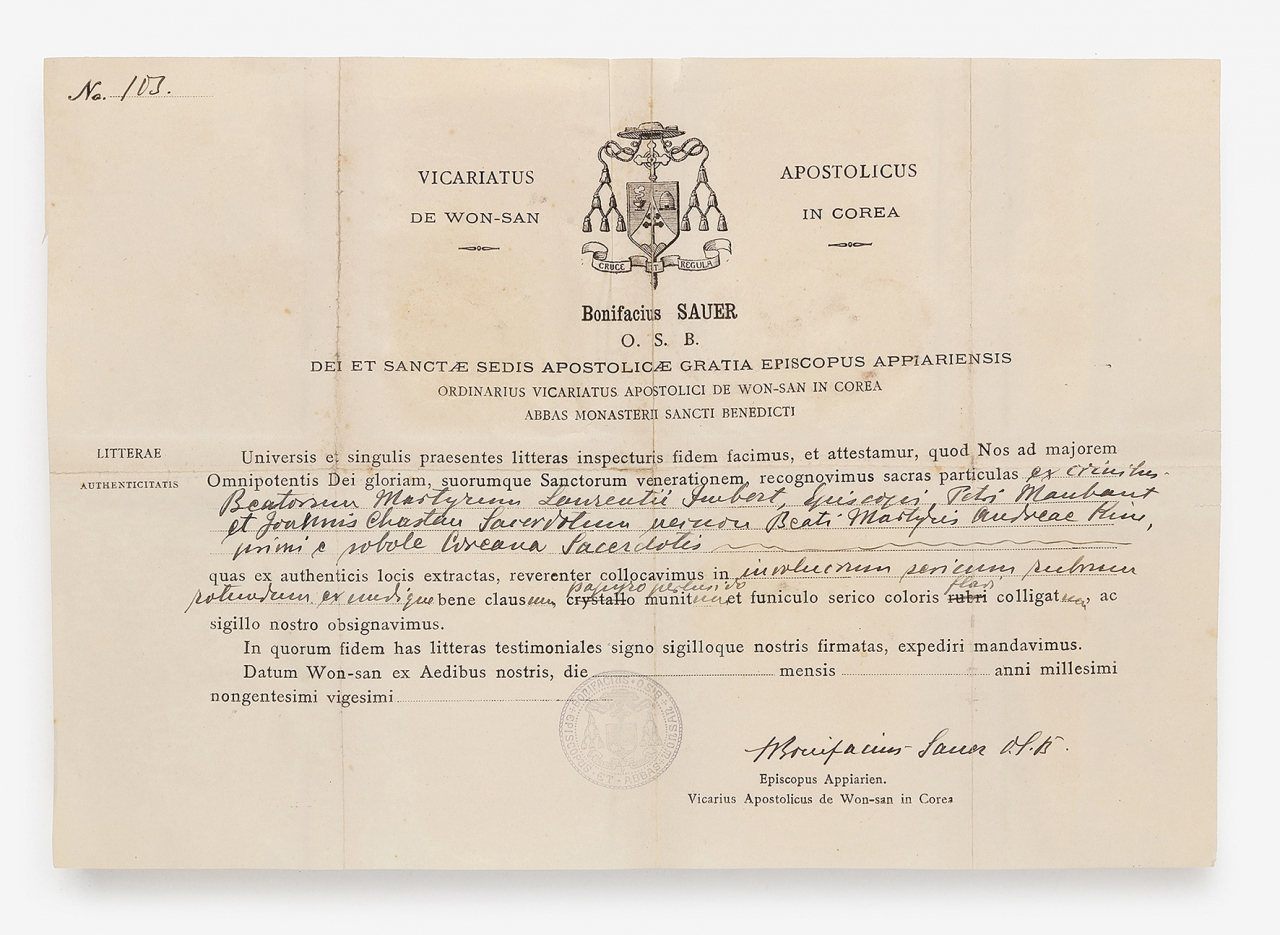 No. 103.
VICARIATUS
DE WON-SAN
APOSTOLICUS
IN COREA
CRUCE ET REGULA
Bonifacius SAUER
O. S. B.
DEI ET SANCTÆ SEDIS APOSTOLICÆ GRATIA EPISCOPUS APPIARIENSIS
ORDINARIUS VICARIATUS APOSTOLICI DE WON-SAN IN COREA
ABBAS MONASTERII SANCTI BENEDICTI
LITTERAE
AUTHENTICITATIS
Universis et singulis praesentes litteras inspecturis fidem facimus, et attestamur, quod Nos ad majorem
Omnipotentis Dei gloriam, suorumque Sanctorum venerationem, recognovimus sacras particulas ex crinibus
Beatorum Martyrum Laurentii Imbert, Episcopi, Petri Maubant
et Joannis Chastan Sacerdotum necnon Beati Martyris Andreae Kim,
primi e sobole Coreana Sacerdotis
quas ex authenticis locis extractas, reverenter collocavimus in involucrum sericum rubrum
rotundum ex undique bene clausum, crystallo papyro perlucido munitum, et funiculo serico coloris rubri flavi colligatum, ac
sigillo nostro obsignavimus.
In quorum fidem has litteras testimoniales signo sigilloque nostris firmatas, expediri mandavimus.
Datum Won-san ex Aedibus nostris, die mensis anni millesimi
nongentesimi vigesimi
BONIFACIUS O.S.B. EPISCOPUS ET ABBAS
+Bonifacius Sauer O.S.B.
Episcopus Appiarien.
Vicarius Apostolicus de Won-san in Corea